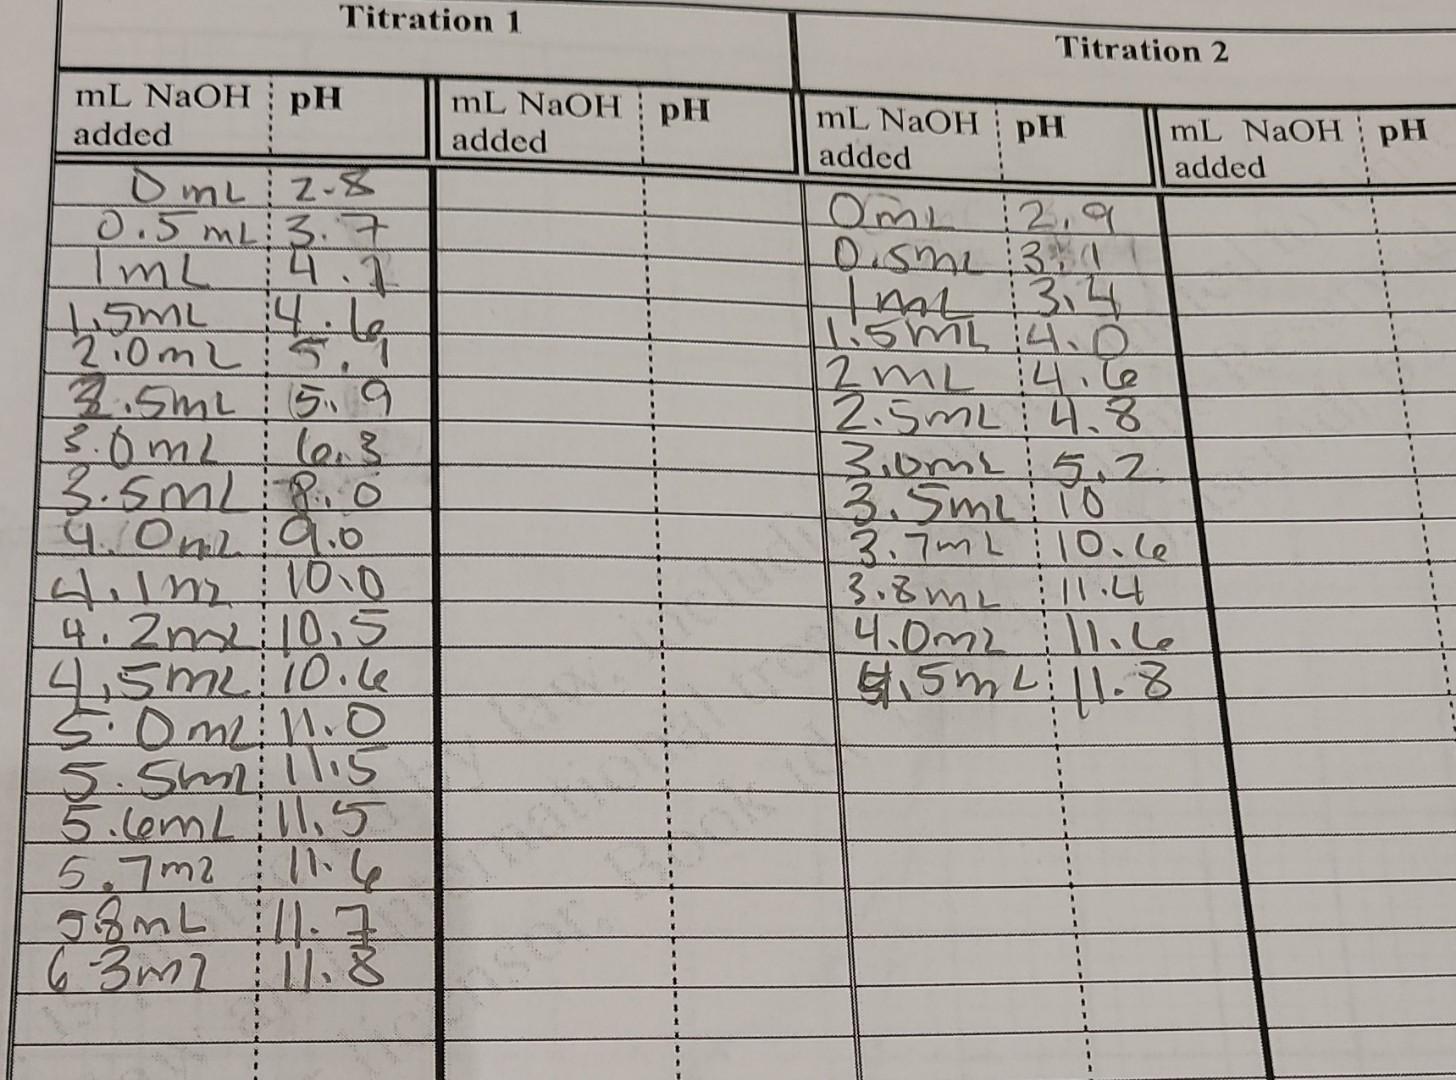 Titration 1
Titration 2
mL NaOH added pH
mL NaOH added pH
mL NaOH added pH
mL NaOH added pH
0 mL 2.8
0.5 mL 3.7
1 mL 4.1
1.5 mL 4.6
2.0 mL 5.1
2.5 mL 5.9
3.0 mL 6.3
3.5 mL 8.0
4.0 mL 9.0
4.1 mL 10.0
4.2 mL 10.5
4.5 mL 10.6
5.0 mL 11.0
5.5 mL 11.5
5.6 mL 11.5
5.7 mL 11.6
5.8 mL 11.7
6.3 mL 11.8
0 mL 2.9
0.5 mL 3.1
1 mL 3.4
1.5 mL 4.0
2 mL 4.6
2.5 mL 4.8
3.0 mL 5.2
3.5 mL 10
3.7 mL 10.6
3.8 mL 11.4
4.0 mL 11.6
4.5 mL 11.8